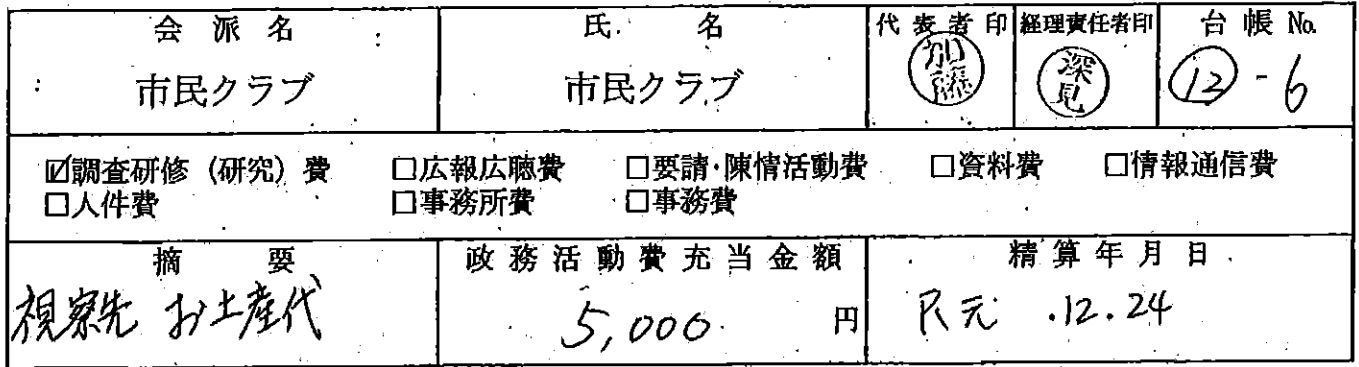 会派名 氏名 代表者印 経理責任者印 台帳No.
市民クラブ 市民クラブ 加藤 深見 ⑫-6
☑調査研修（研究）費 □広報広聴費 □要請・陳情活動費 □資料費 □情報通信費
□人件費 □事務所費 □事務費
摘要 政務活動費充当金額 精算年月日
視察先 お土産代 5,000 円 R元.12.24